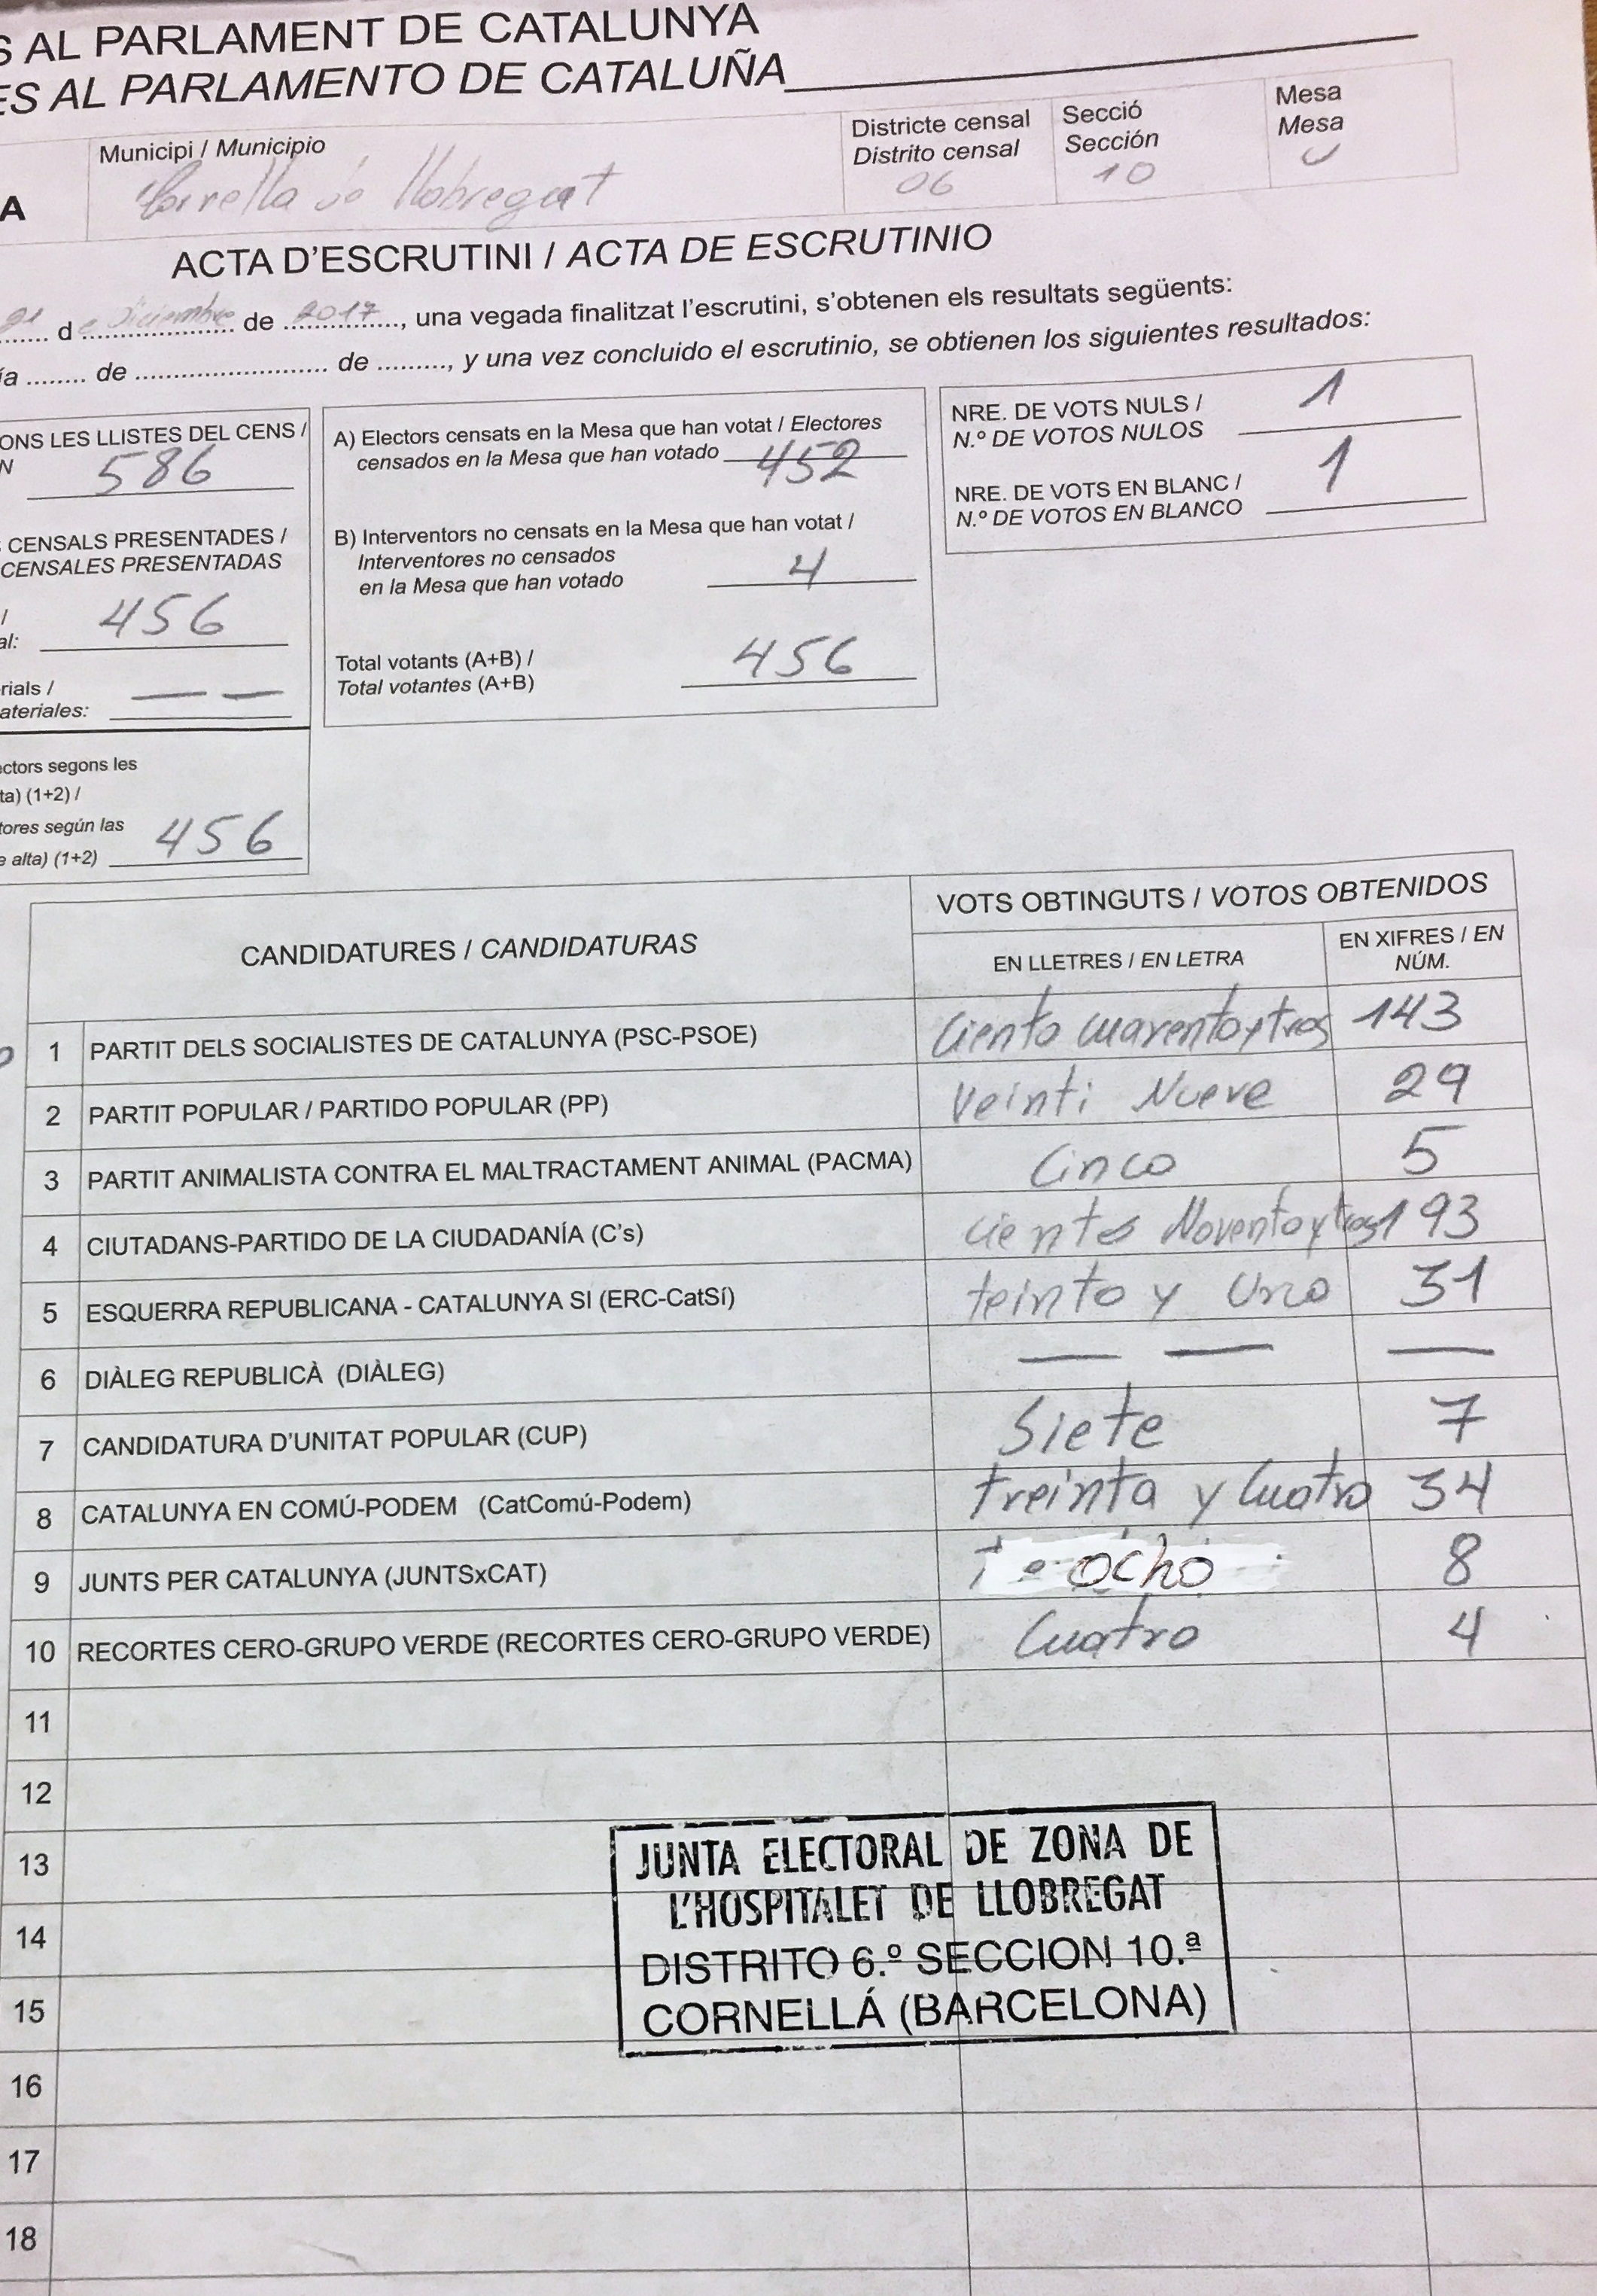 S AL PARLAMENT DE CATALUNYA
ES AL PARLAMENTO DE CATALUÑA
A
Municipi / Municipio
de Llobregat
Districte censal
Distrito censal
06
Secció
Sección
10
Mesa
Mesa
U
ACTA D'ESCRUTINI / ACTA DE ESCRUTINIO
....... d.................. de 2017, una vegada finalitzat l'escrutini, s'obtenen els resultats següents:
ía ........ de ........................... de ........, y una vez concluido el escrutinio, se obtienen los siguientes resultados:
ONS LES LLISTES DEL CENS /
N 586
CENSALS PRESENTADES /
CENSALES PRESENTADAS
/
al: 456
rials /
ateriales: — —
ectors segons les
ta) (1+2) /
tores según las
e alta) (1+2) 456
A) Electors censats en la Mesa que han votat / Electores
censados en la Mesa que han votado 452
B) Interventors no censats en la Mesa que han votat /
Interventores no censados
en la Mesa que han votado 4
Total votants (A+B) /
Total votantes (A+B) 456
NRE. DE VOTS NULS /
N.º DE VOTOS NULOS 1
NRE. DE VOTS EN BLANC /
N.º DE VOTOS EN BLANCO 1
CANDIDATURES / CANDIDATURAS
VOTS OBTINGUTS / VOTOS OBTENIDOS
EN LLETRES / EN LETRA
EN XIFRES / EN NÚM.
1 PARTIT DELS SOCIALISTES DE CATALUNYA (PSC-PSOE) Ciento cuarentaytres 143
2 PARTIT POPULAR / PARTIDO POPULAR (PP) Veinti Nueve 29
3 PARTIT ANIMALISTA CONTRA EL MALTRACTAMENT ANIMAL (PACMA) Cinco 5
4 CIUTADANS-PARTIDO DE LA CIUDADANÍA (C's) ciento Noventaytres 193
5 ESQUERRA REPUBLICANA - CATALUNYA SI (ERC-CatSí) Teinta y Uno 31
6 DIÀLEG REPUBLICÀ (DIÀLEG) — — —
7 CANDIDATURA D'UNITAT POPULAR (CUP) Siete 7
8 CATALUNYA EN COMÚ-PODEM (CatComú-Podem) Treinta y Cuatro 34
9 JUNTS PER CATALUNYA (JUNTSxCAT) ocho 8
10 RECORTES CERO-GRUPO VERDE (RECORTES CERO-GRUPO VERDE) Cuatro 4
11
12
13
14
15
16
17
18
JUNTA ELECTORAL DE ZONA DE
L'HOSPITALET DE LLOBREGAT
DISTRITO 6.º SECCION 10.ª
CORNELLÁ (BARCELONA)